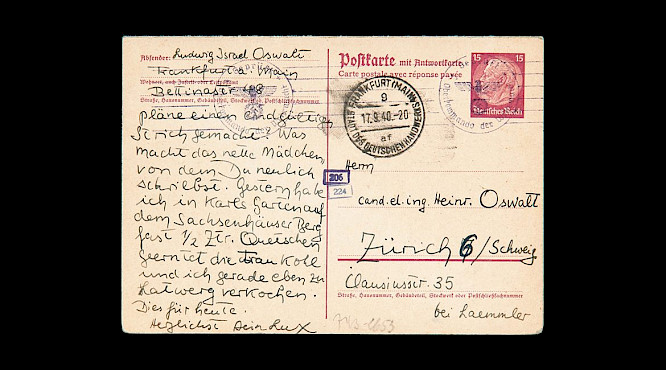 Absender: Ludwig Israel Oswalt
Frankfurt a. Main
Wohnort, auch Zustell- oder Leitpostamt
Bettinastr. 48
Straße, Hausnummer, Gebäudeteil, Stockwerk
pläne einen endgültigen
Strich gemacht. Was
macht das nette Mädchen,
von dem Du neulich
schriebst. Gestern habe
ich in Karls Garten auf
dem Sachsenhäuser Berg
fast 1/2 Ztr. Quetschen
geerntet die Frau Koll
und ich gerade eben zu
Latwerg verkochen.
Dies für heute.
Herzlichst Dein Lux
Postkarte mit Antwortkarte
Carte postale avec réponse payée
15 15
Deutsches Reich
FRANKFURT (MAIN)
9
17.9.40.-20
af
STADT DES DEUTSCHEN HANDWERKS
Oberkommando der
206
224
Herrn
cand. el. ing. Heinr. Oswalt
Zürich 6/Schweiz
Clausiusstr. 35
Straße, Hausnummer, Gebäudeteil, Stockwerk oder Postschließfachnummer
bei Laemmler